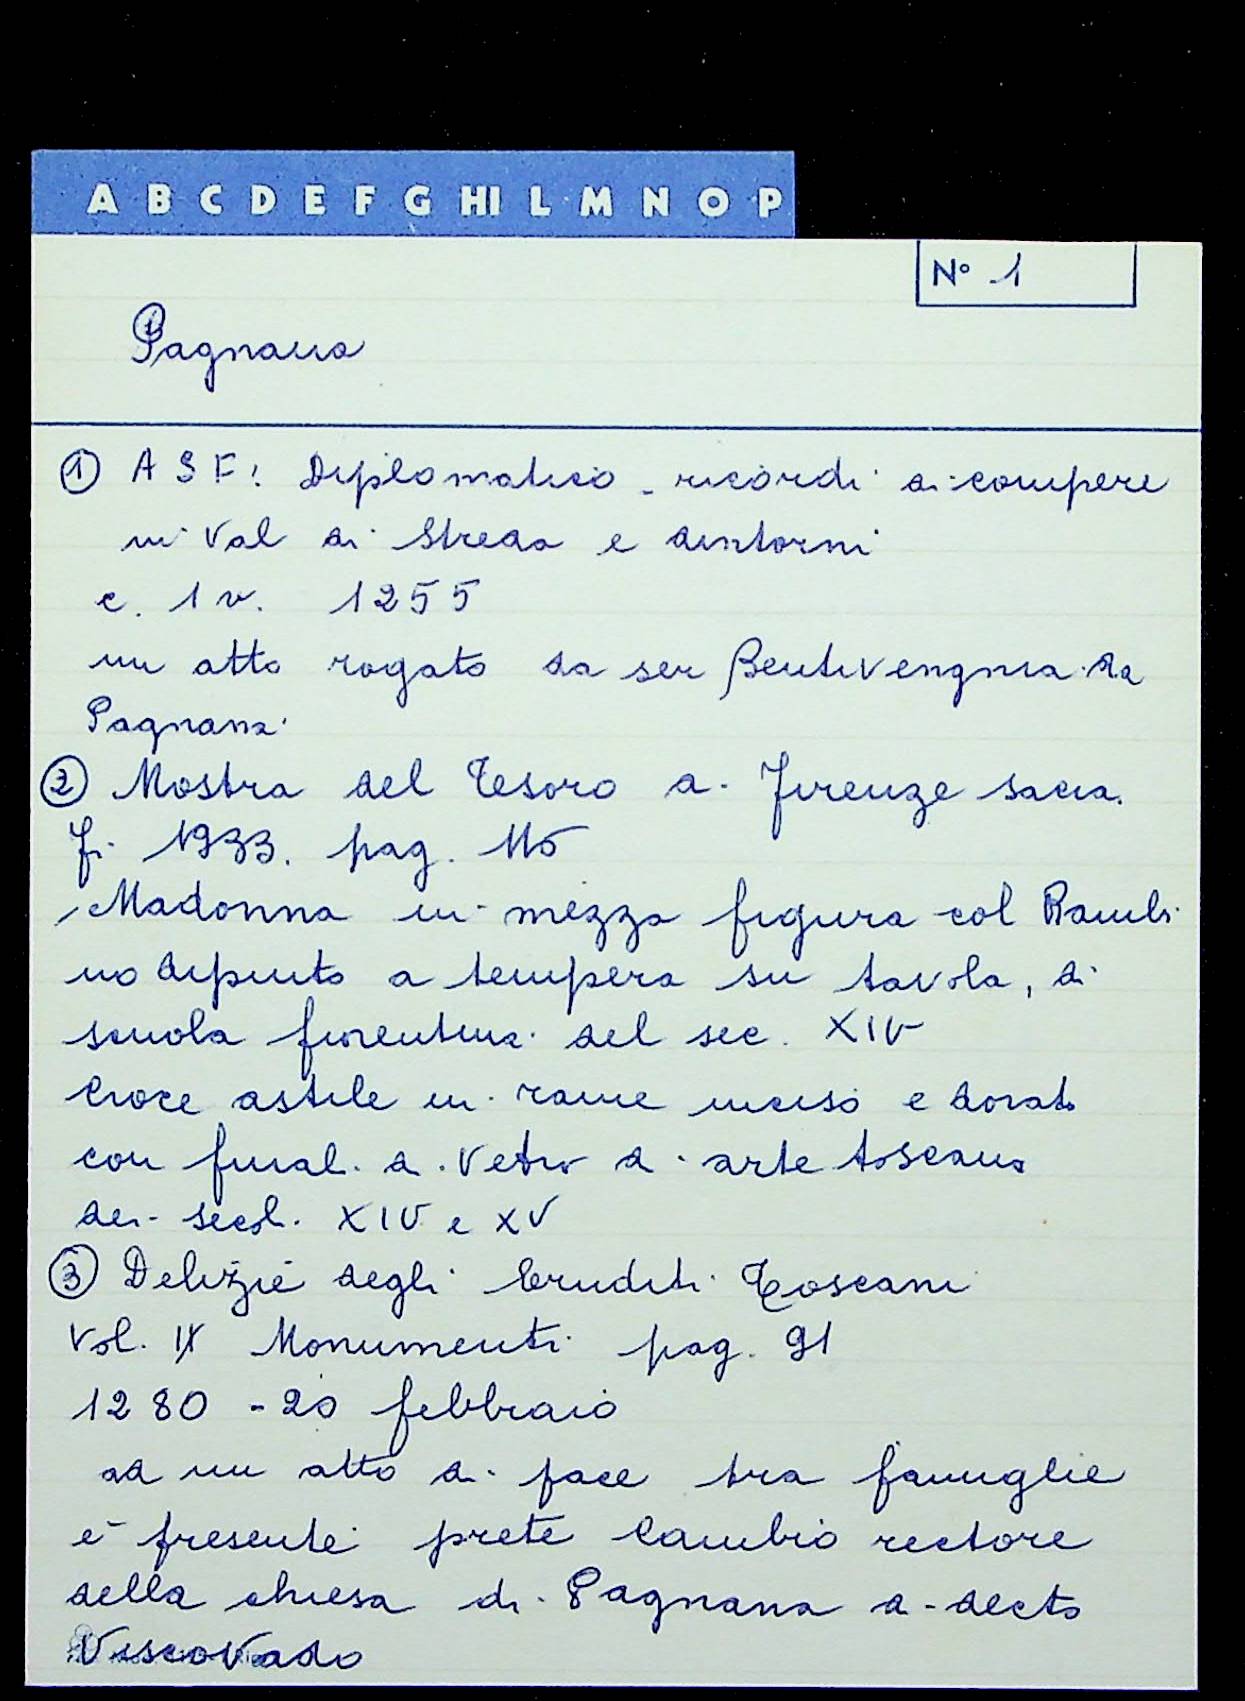 A B C D E F G HI L M N O P
N° 1
Pagnana
① A S F. Diplomatico - ricordi di compere
in Val di Streda e dintorni
c. 1 v. 1255
un atto rogato da ser Bentivengnia da
Pagnana
② Mostra del Tesoro di Firenze sacra.
Fi 1933. pag. 115
Madonna in mezza figura col Bambi
no dipinto a tempera su tavola, di
scuola fiorentina del sec. XIV
Croce astile in rame inciso e dorato
con finali di vetro di arte toscana
dei secoli XIV e XV
③ Delizie degli Eruditi Toscani
Vol. IX Monumenti pag. 91
1280 - 20 febbraio
ad un atto di pace tra famiglie
è presente prete Cambio rectore
della chiesa di Pagnana di decto
Viscovado